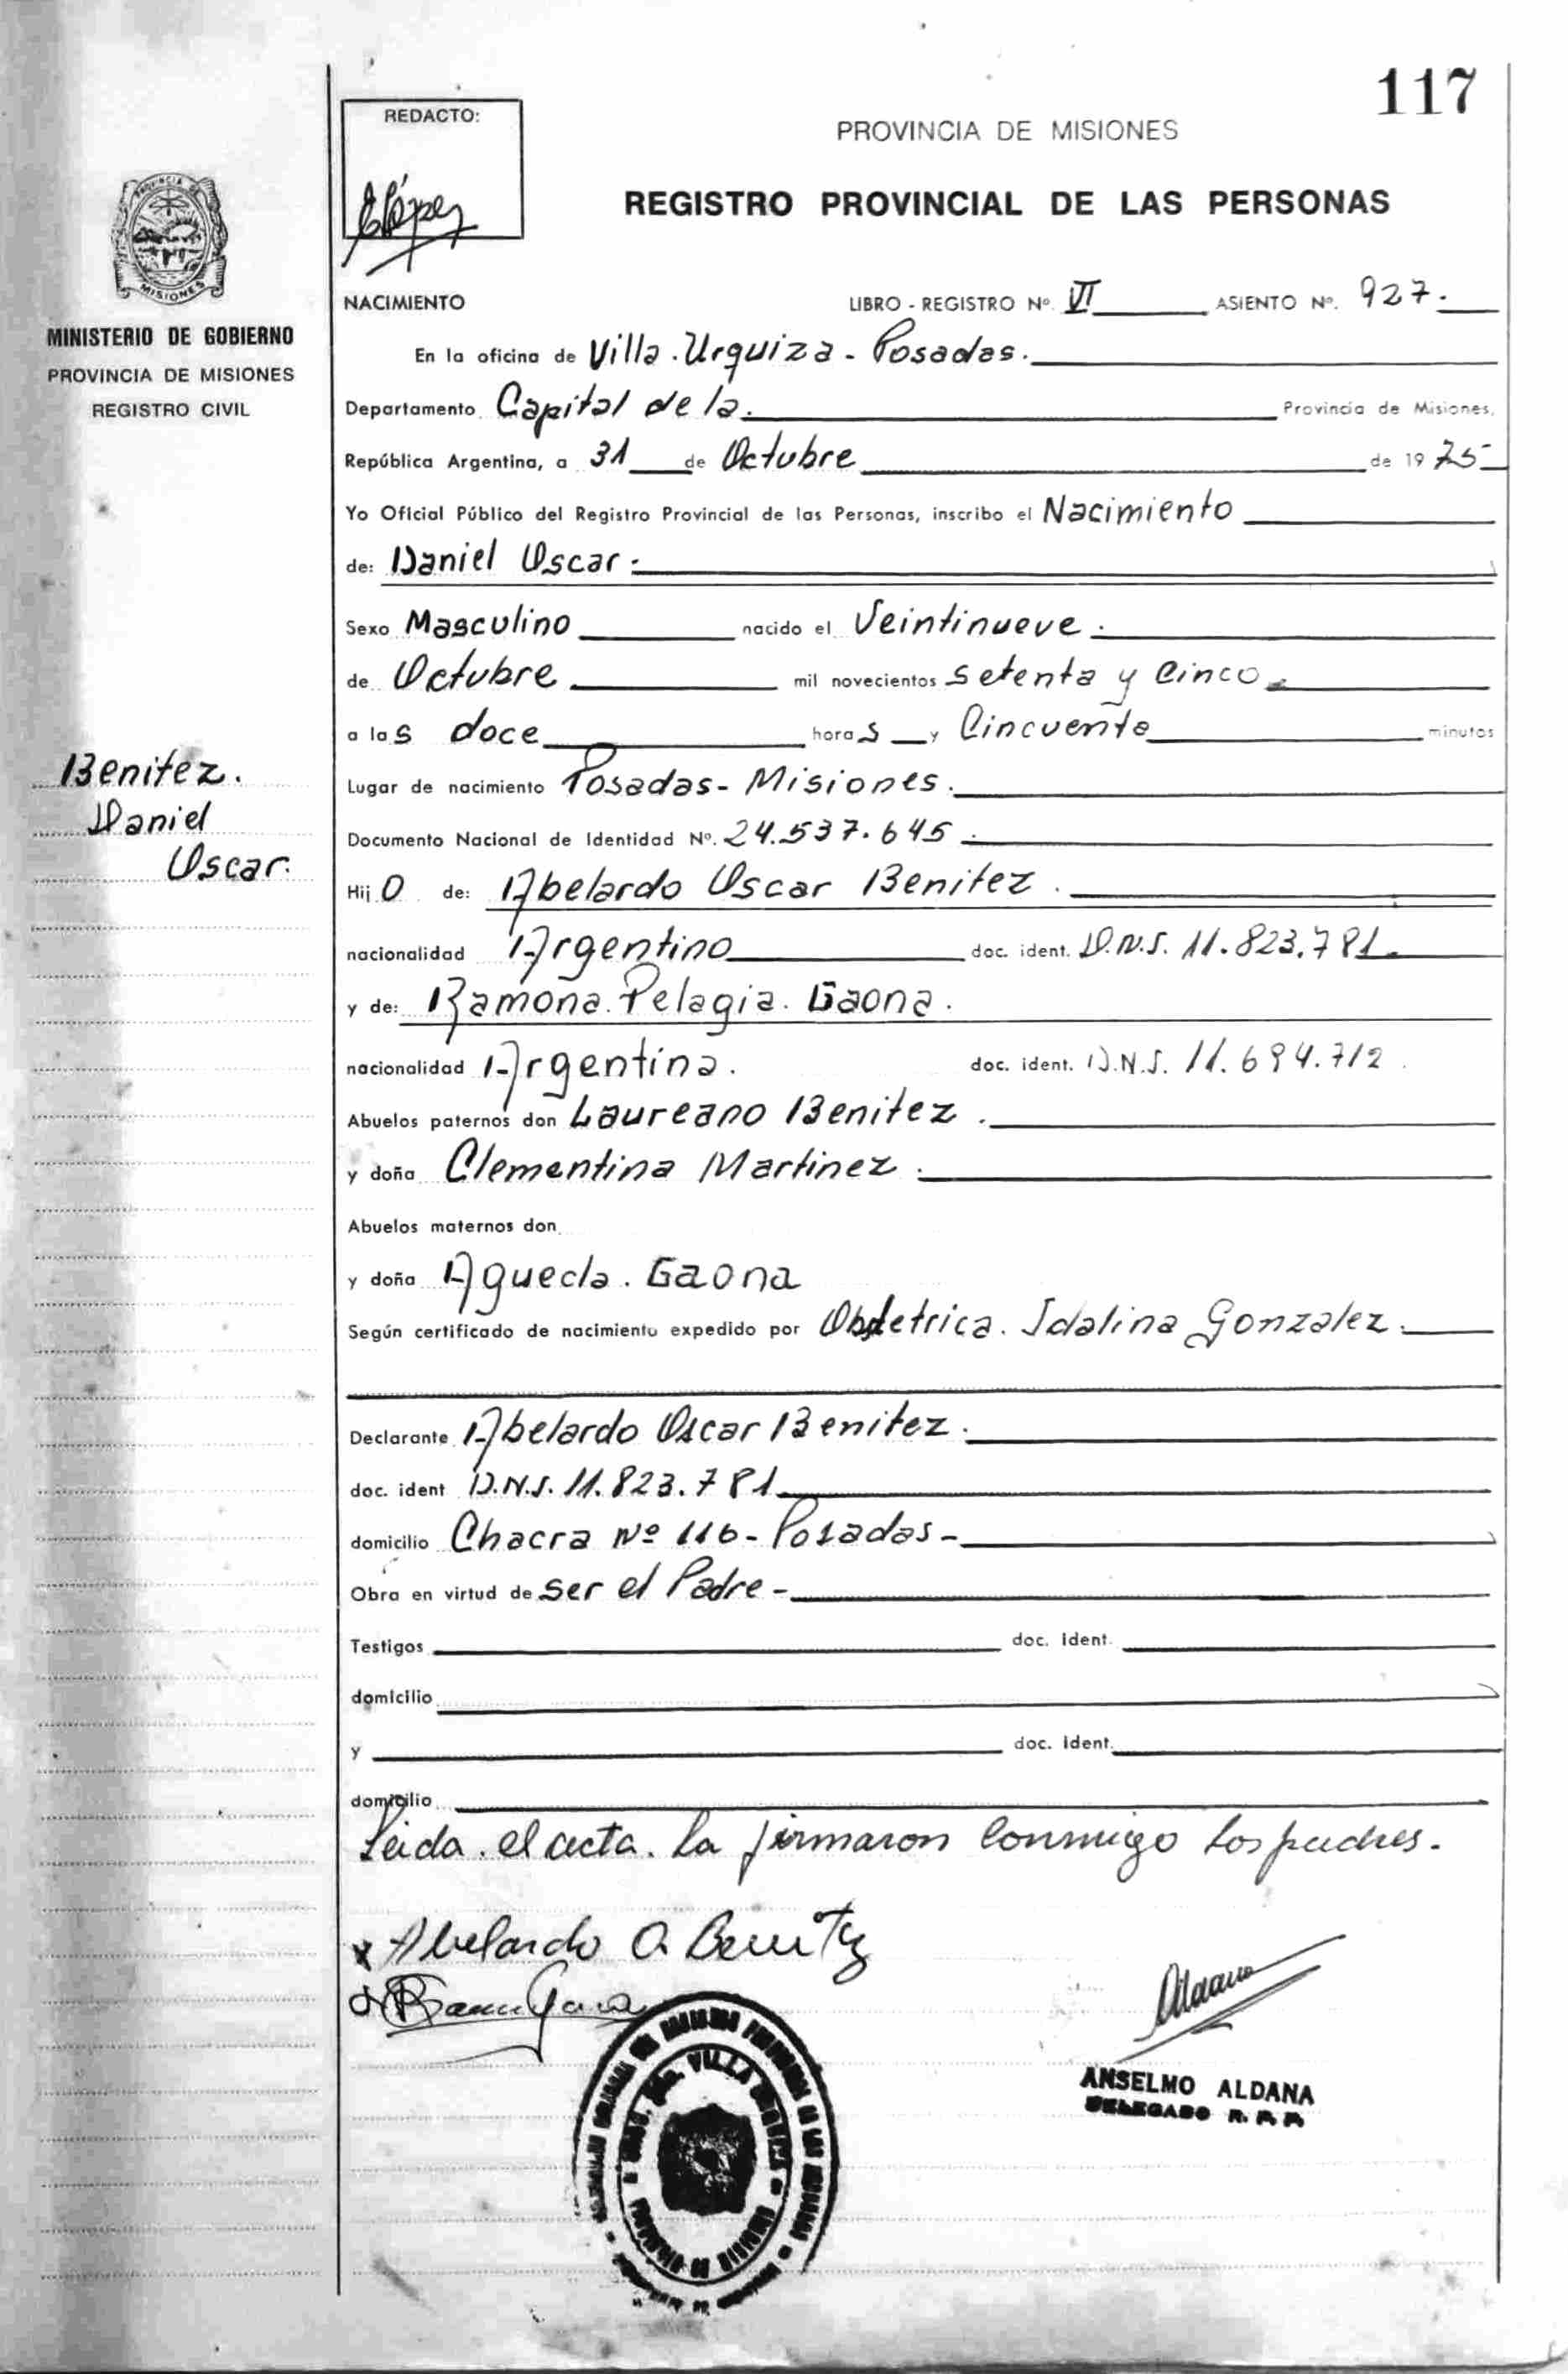 117
REDACTO:
ELópez
PROVINCIA DE MISIONES
REGISTRO PROVINCIAL DE LAS PERSONAS
PROVINCIA DE
MISIONES
MINISTERIO DE GOBIERNO
PROVINCIA DE MISIONES
REGISTRO CIVIL
NACIMIENTO LIBRO - REGISTRO Nº. VI ASIENTO Nº. 927.
En la oficina de Villa. Urquiza - Posadas.
Departamento Capital de la. Provincia de Misiones,
República Argentina, a 31 de Octubre de 1975-
Yo Oficial Público del Registro Provincial de las Personas, inscribo el Nacimiento
de: Daniel Oscar.
Sexo Masculino nacido el Veintinueve.
de Octubre mil novecientos setenta y Cinco
a las doce horas y Cincuenta minutos
Benitez.
Daniel
Oscar.
Lugar de nacimiento Posadas- Misiones.
Documento Nacional de Identidad Nº. 24.537.645.
Hijo de: Abelardo Oscar Benitez.
nacionalidad Argentino doc. ident. D.N.I. 11.823.781
y de: Ramona. Pelagia. Gaona.
nacionalidad Argentina. doc. ident. D.N.I. 11.694.712.
Abuelos paternos don Laureano Benitez.
y doña Clementina Martinez.
Abuelos maternos don
y doña Agueda. Gaona
Según certificado de nacimiento expedido por Obstetrica. Idalina Gonzalez.
Declarante Abelardo Oscar Benitez.
doc. ident D.N.I. 11.823.781
domicilio Chacra Nº 116- Posadas-
Obra en virtud de ser el Padre-
Testigos doc. ident.
domicilio
y doc. ident.
domicilio
Leida. el acta. la firmaron Conmigo los padres.
x Abelardo O Benitez
Aldana
ANSELMO ALDANA
DELEGADO R. P. P.
VILLA